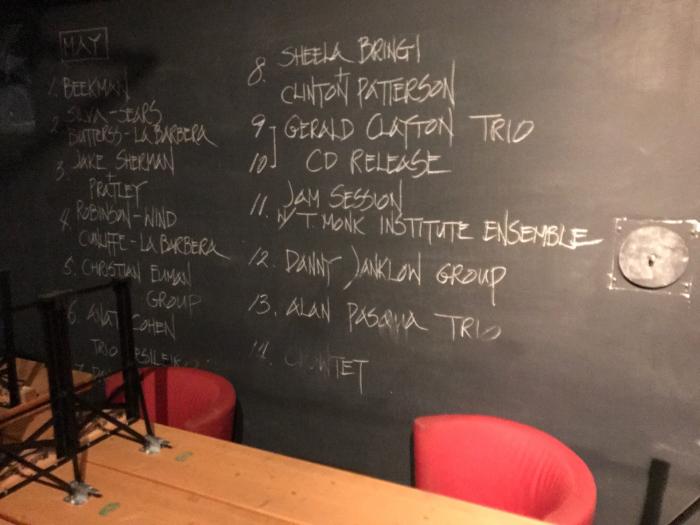 MAY
1. BEEKMAN
2. SILVA-SEARS
BUTTERSS-LA BARBERA
3. JAKE SHERMAN
+
PRATLEY
4. ROBINSON-WIND
CUNLIFFE-LA BARBERA
5. CHRISTIAN EUMAN
GROUP
6. ANAT COHEN
TRIO
8. SHEELA BRINGI
+
CLINTON PATTERSON
9 GERALD CLAYTON TRIO
10 CD RELEASE
11. JAM SESSION
W/ T. MONK INSTITUTE ENSEMBLE
12. DANNY JANKLOW GROUP
13. ALAN PASQUA TRIO
14.